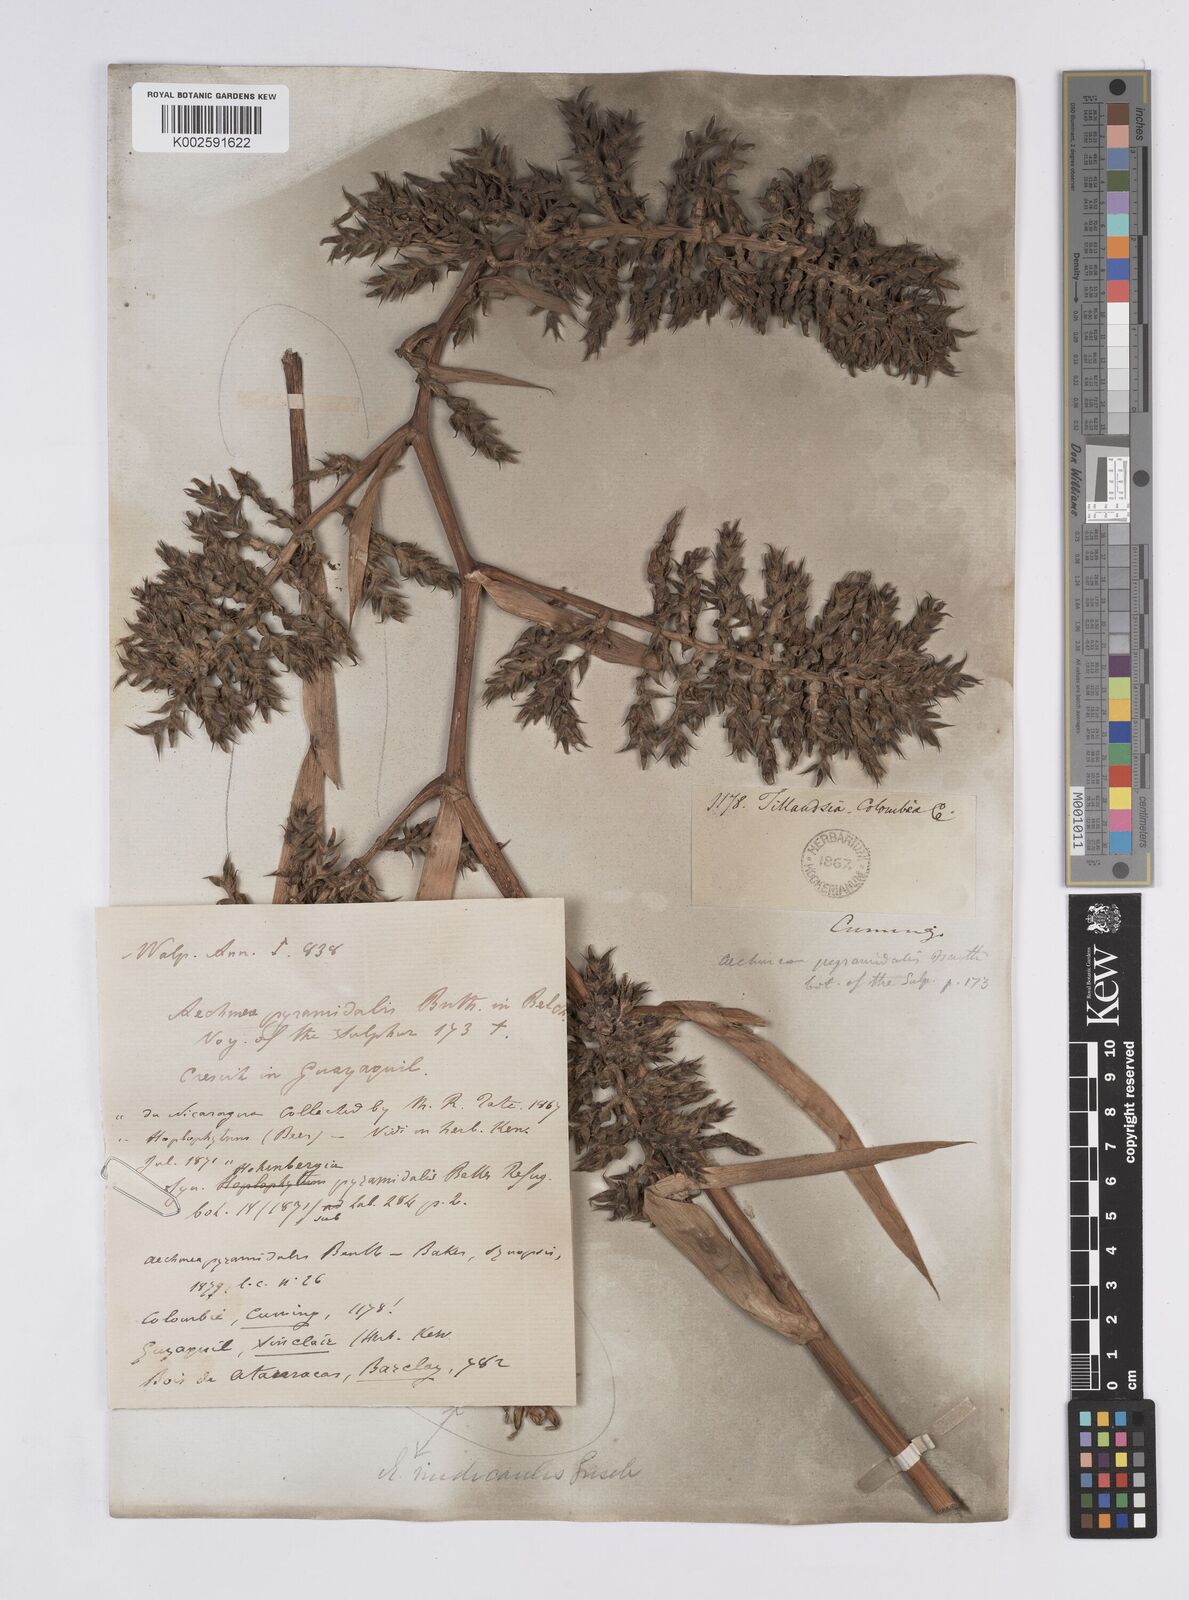 ROYAL BOTANIC GARDENS KEW
K002591622
1178. Tillandsia. Colombia
HERBARIUM
1867.
HOOKERIANUM
Cuming
Aechmea pyramidalis Benth
bot. of the Sulp. p. 173
Walp. Ann. 838
Aechmea pyramidalis Bnth. in Belch.
Voy. of the Sulphur 173
Crescit in Guayaquil.
" In Nicaragua Collected by R. Tate. 1867
Hoplophytum (Beer) — Vidi in herb. Kew.
Jul. 1871 "
Hohenbergia
Syn. Hoplophytum pyramidalis Baker Refug.
bot. (1871) sub tab. 284 p. 2.
Aechmea pyramidalis Benth — Baker, Synopsis,
1879, l.c. n° 26
Colombie, Cuming, 1178!
Guyaquil, Sinclair (Herb. Kew
Bois de Atacracas, Barclay, 782
nudicaulis Griseb
inches
centimetres
Density
Don Williams
M001011
Royal
Botanic
Gardens
Kew
0 1 2 3 4 5 6 7 8 9 10
cm